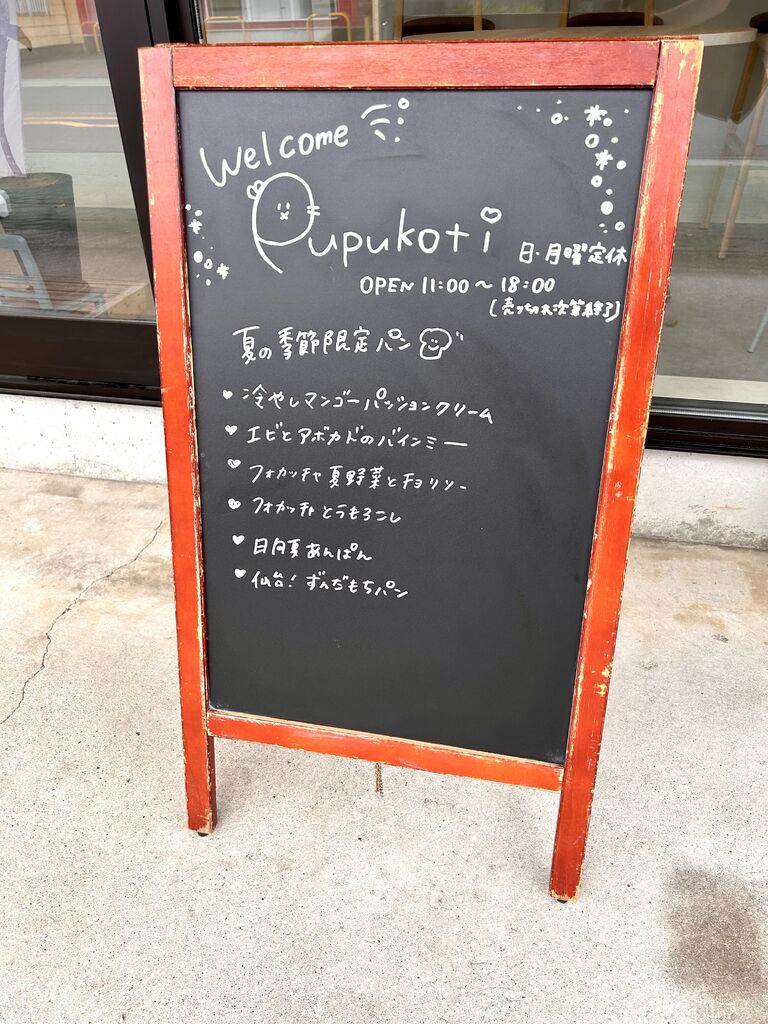 Welcome
Pupukoti
日・月曜定休
OPEN 11:00〜18:00
(売り切れ次第終了)
夏の季節限定パン
冷やしマンゴーパッションクリーム
エビとアボカドのバインミー
フォカッチャ夏野菜とチョリソー
フォカッチャとうもろこし
日向夏あんぱん
仙台!ずんだもちパン